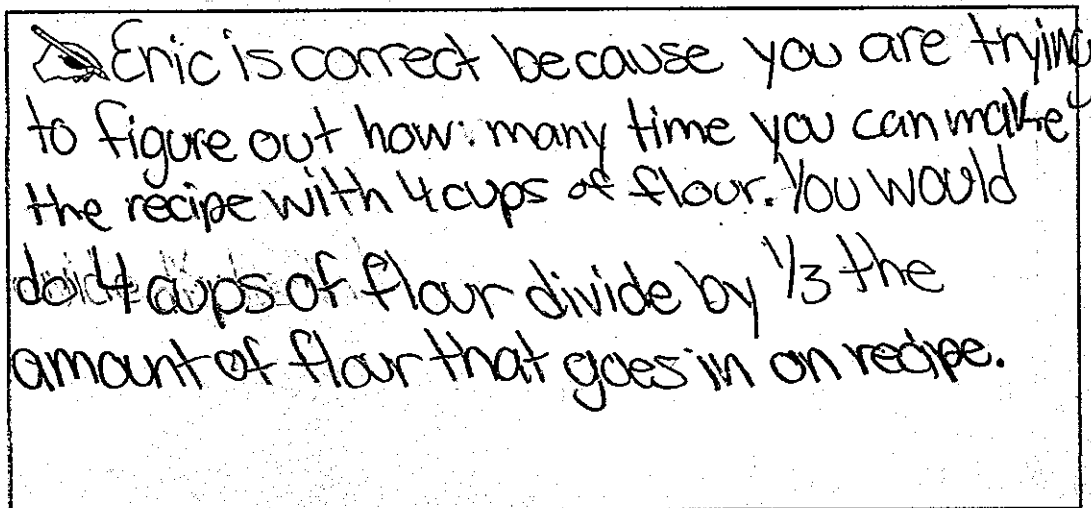 Eric is correct because you are trying
to figure out how many time you can make
the recipe with 4 cups of flour. You would
do 4 cups of flour divide by 1/3 the
amount of flour that goes in on recipe.